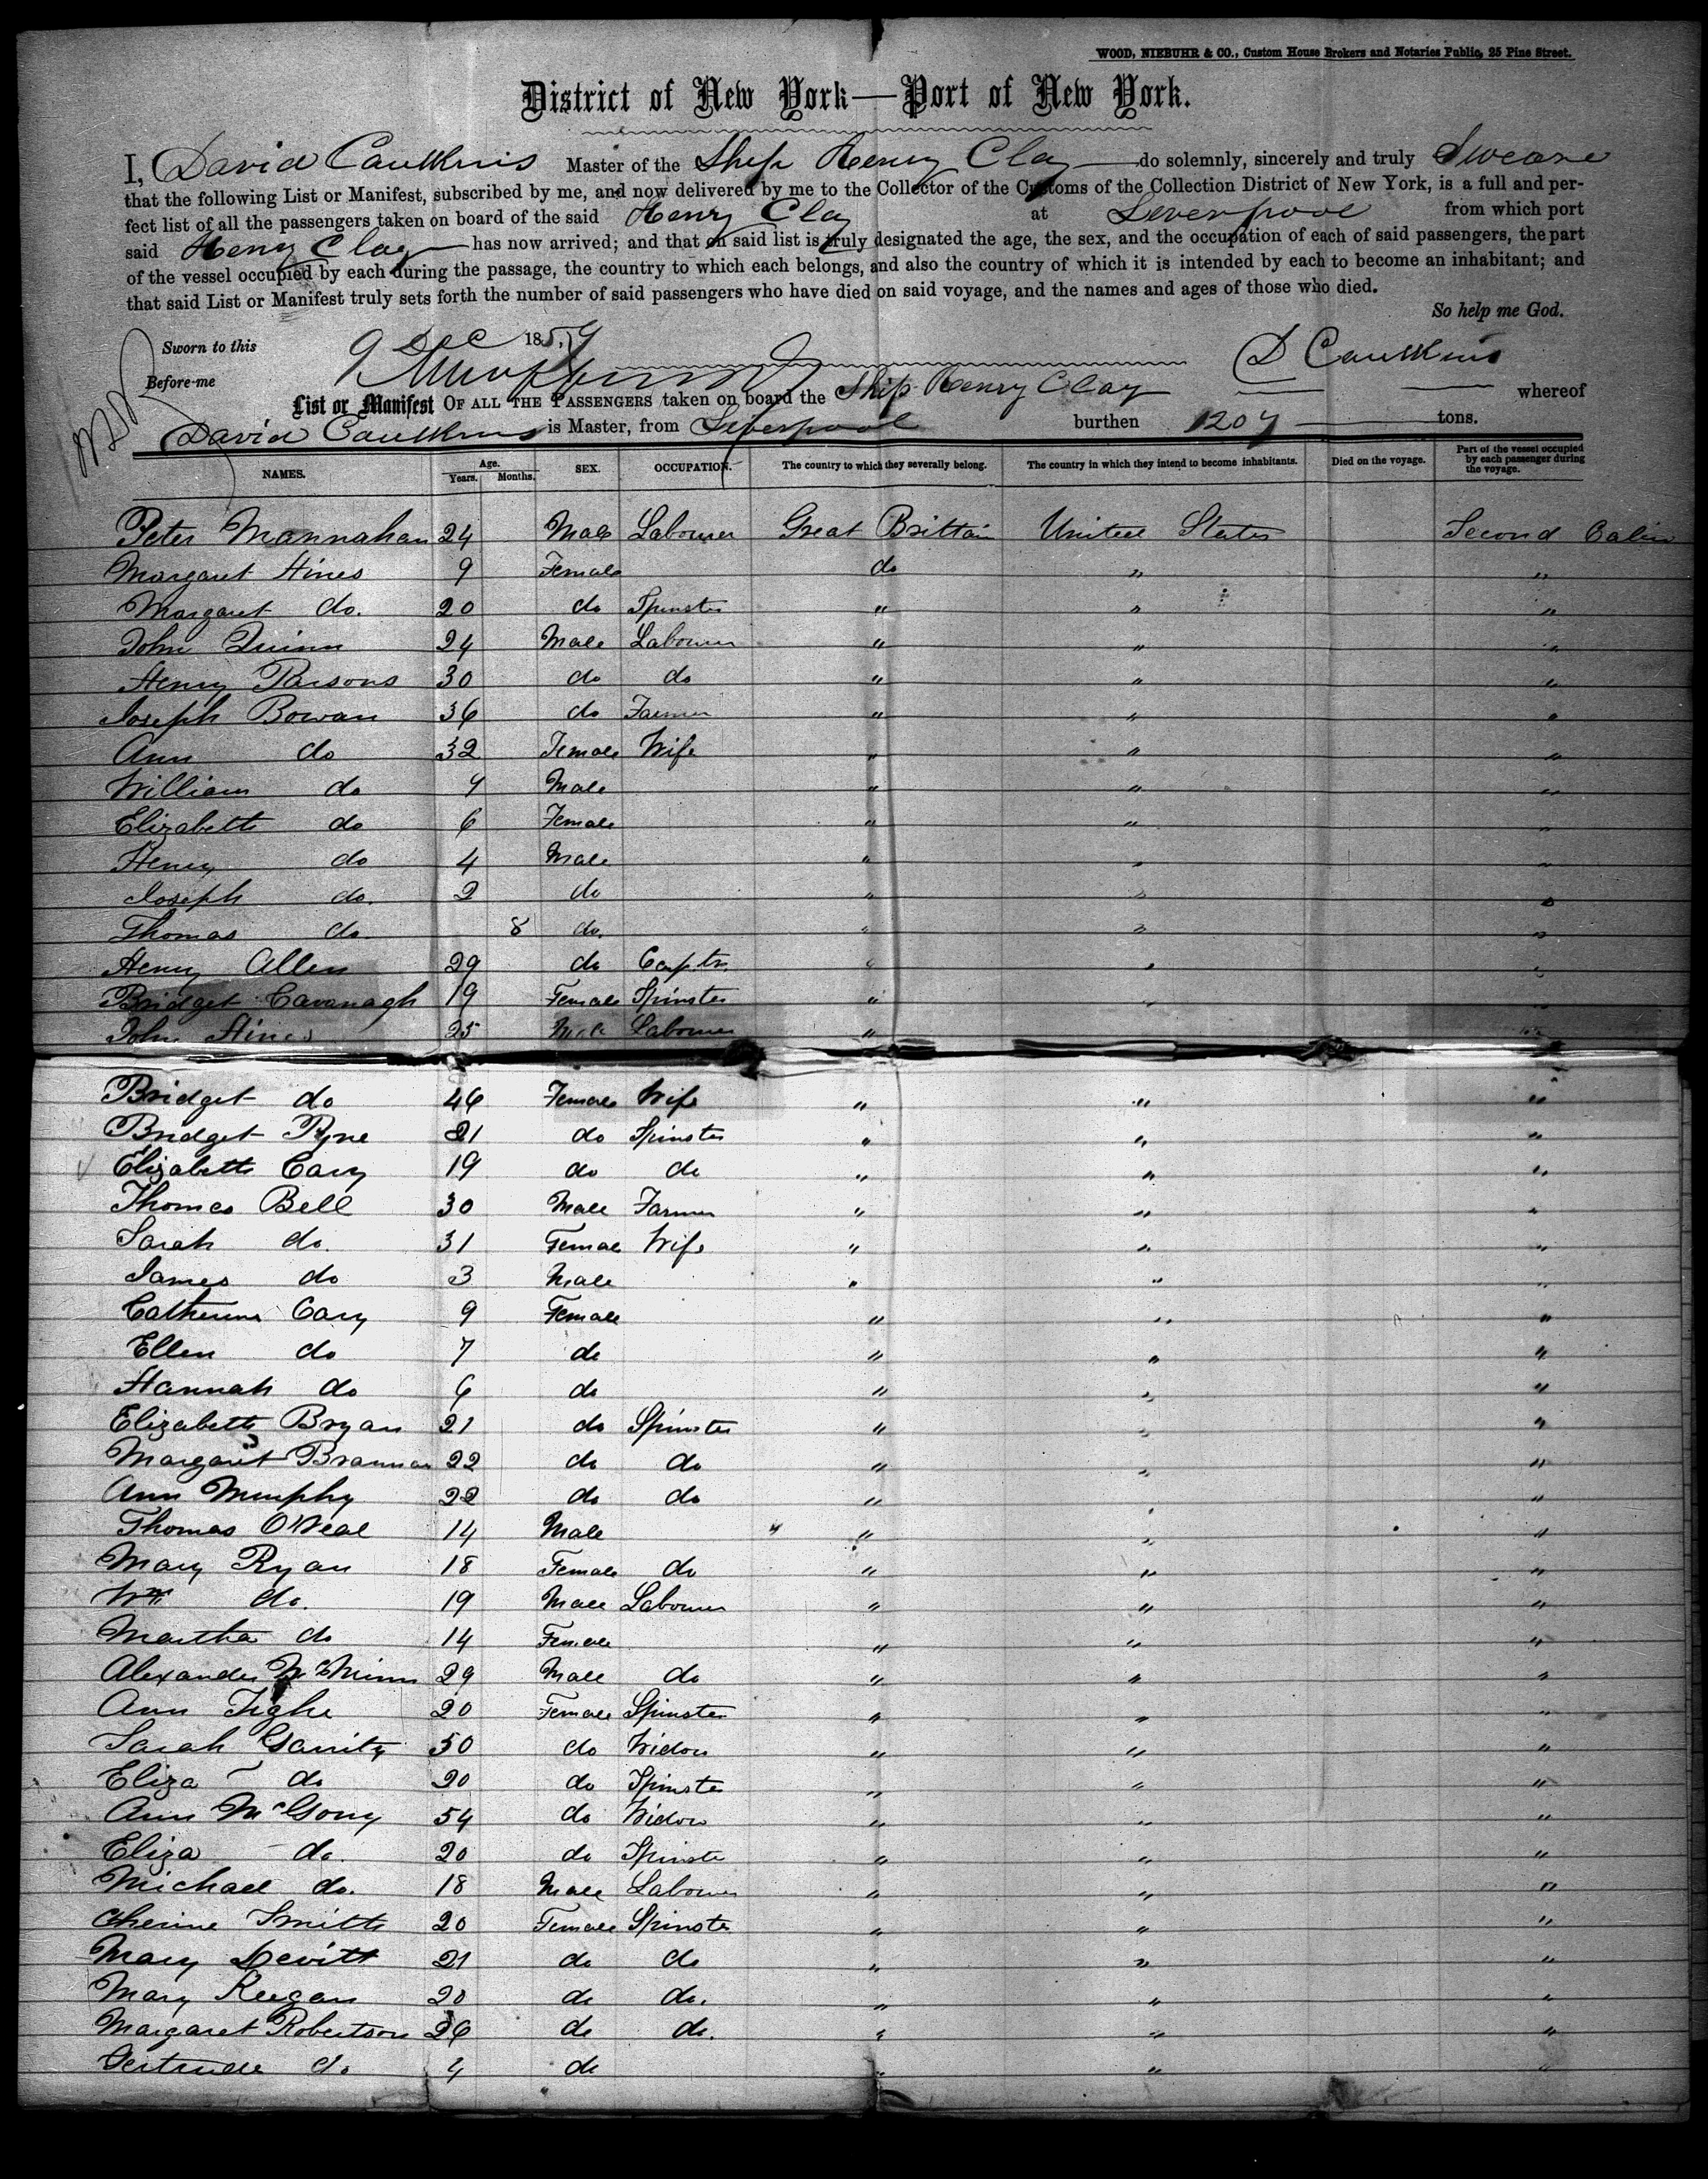 WOOD, NIEBUHR & CO., Custom House Brokers and Notaries Public, 25 Pine Street.
District of New York—Port of New York.
I, David Caulkins Master of the Ship Henry Clay do solemnly, sincerely and truly Sweare
that the following List or Manifest, subscribed by me, and now delivered by me to the Collector of the Customs of the Collection District of New York, is a full and per-
fect list of all the passengers taken on board of the said Henry Clay at Liverpool from which port
said Henry Clay has now arrived; and that on said list is truly designated the age, the sex, and the occupation of each of said passengers, the part
of the vessel occupied by each during the passage, the country to which each belongs, and also the country of which it is intended by each to become an inhabitant; and
that said List or Manifest truly sets forth the number of said passengers who have died on said voyage, and the names and ages of those who died.
So help me God.
Sworn to this 9 Dec 1859
Before me D Caulkins
List or Manifest OF ALL THE PASSENGERS taken on board the Ship Henry Clay whereof
David Caulkins is Master, from Liverpool burthen 1207 tons.
NAMES. Age. Years. Months. SEX. OCCUPATION. The country to which they severally belong. The country in which they intend to become inhabitants. Died on the voyage. Part of the vessel occupied by each passenger during the voyage.
Peter Mannahan 24 Male Labourer Great Brittain United States Second Cabin
Margaret Hines 9 Female do " "
Margaret do. 20 do Spinster " " "
John Quinn 24 Male Labourer " " "
Henry Parsons 30 do do " " "
Joseph Bowan 36 do Farmer " " "
Ann do 32 Female Wife " " "
William do 7 Male " " "
Elizabeth do 6 Female " " "
Henry do 4 Male " " "
Joseph do. 2 do " " "
Thomas do 8 do. " " "
Henry Allen 29 do Captn. " " "
Bridget Cavanagh 19 Female Spinster " " "
John Hines 25 Male Labourer "
Bridget do 46 Female Wife " " "
Bridget Ryne 21 do Spinster " " "
Elizabeth Cary 19 do do " " "
Thomas Bell 30 Male Farmer " " "
Sarah do. 31 Femal Wife " " "
James do 3 Male " " "
Catherine Cary 9 Female " " "
Ellen do 7 do " " "
Hannah do 6 do " " "
Elizabeth Bryan 21 do Spinster " " "
Margaret Brannan 22 do do " " "
Ann Murphy 22 do do " " "
Thomas O'Neal 14 Male " " "
Mary Ryan 18 Female do " " "
Wm do. 19 Male Labourer " " "
Martha do 14 Female " " "
Alexander McMinn 29 Male do " " "
Ann Tighe 20 Female Spinster " " "
Sarah Garrity 50 do Widow " " "
Eliza do 20 do Spinster " " "
Ann McGony 54 do Widow " " "
Eliza do. 20 do Spinste " " "
Michael do. 18 Male Labourer " " "
Cherine Smith 20 Female Spinster " " "
Mary Devitt 21 do do " " "
Mary Keegan 20 do do. " " "
Margaret Robertson 26 do do. " " "
Gertrude do 4 do " " "